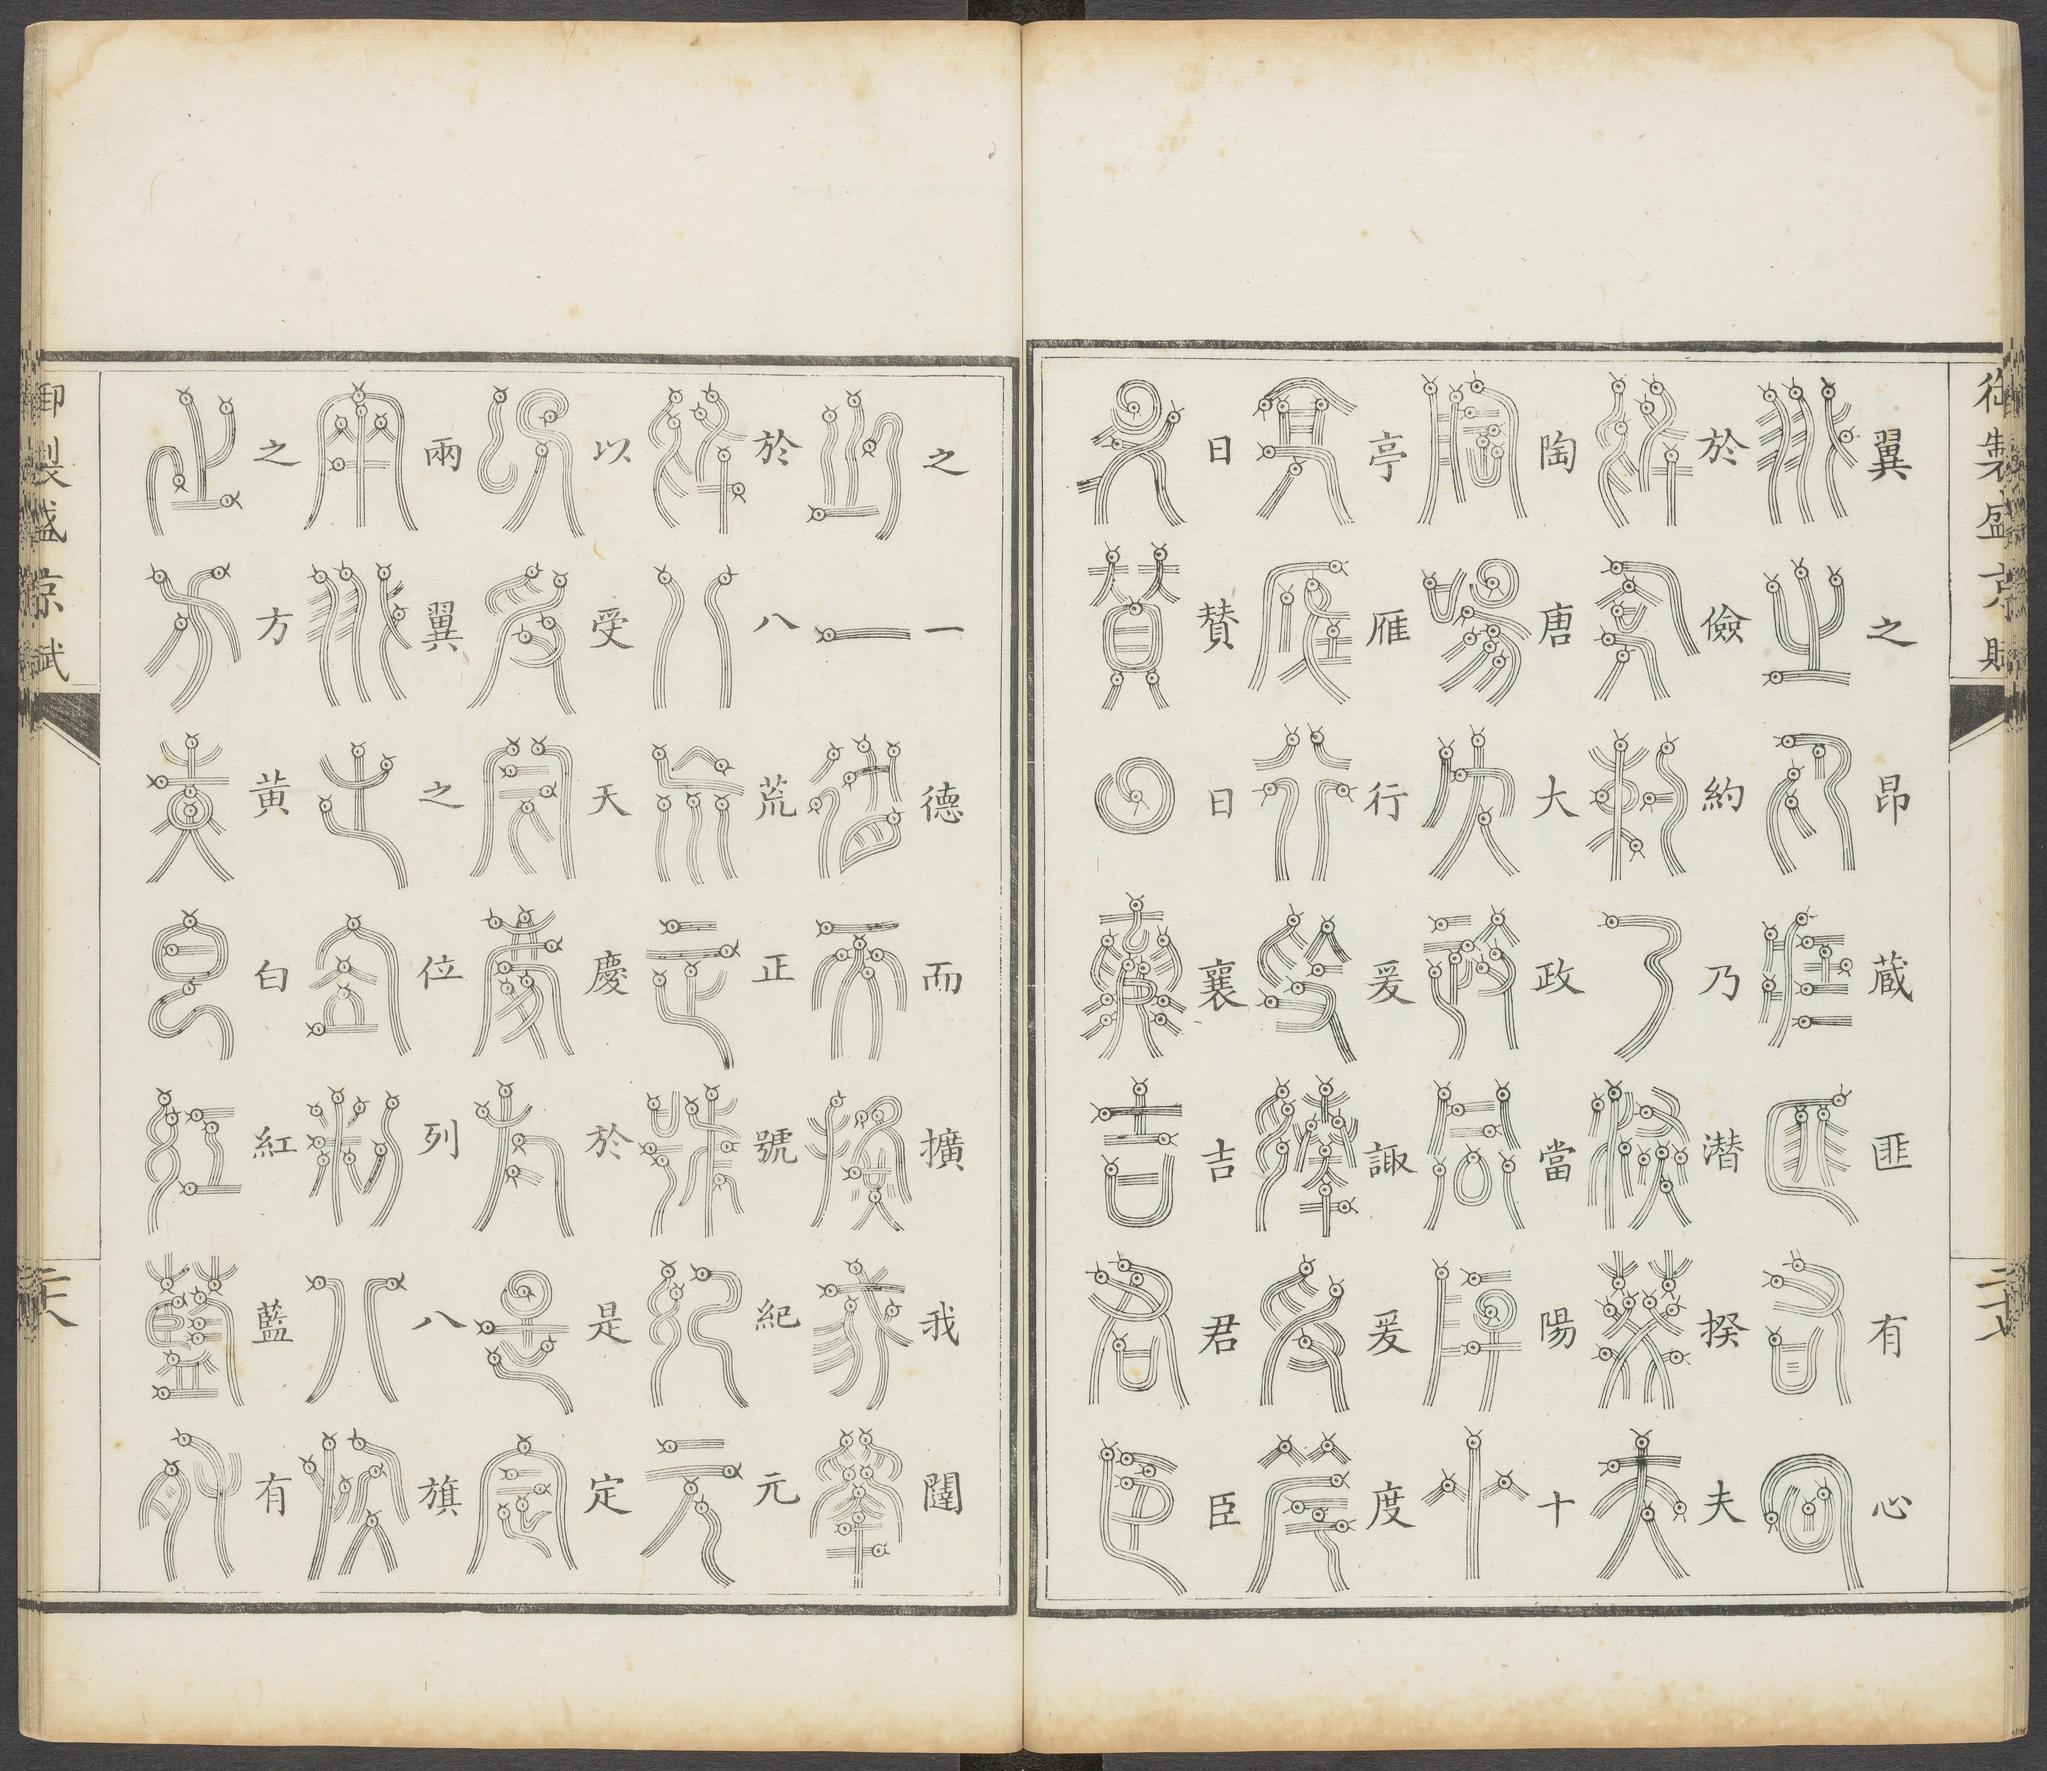 御製盛京賦
翼之昂蔵匪有心
於儉約乃潜揆夫
陶唐大政當陽十
亭雁行爰諏爰度
曰賛曰襄吉君臣
之一德而擴我闥
於八荒正號紀元
以受天慶於是定
兩翼之位列八旗
之方黄白紅藍有
御製盛京賦
二十八